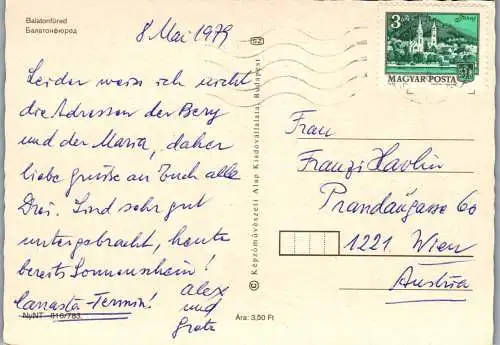 Balatonfüred
Балатонфюред
8 Mai 1979
Leider weiss ich nicht
die Adressen der Berg
und der Maria, daher
liebe Grüße an Euch alle
Drei. Sind sehr gut
untergebracht, heute
bereits Sonnenschein!
Canasta-Termin!
Alex
und
Grete
NyNT - 616/783.
Ára: 3,50 Ft
52
© Képzőművészeti Alap Kiadóvállalata, Budapest
3 Ft
MAGYAR POSTA
Frau
Franzi Havlin
Prandaugasse 60
1221 Wien
Austria